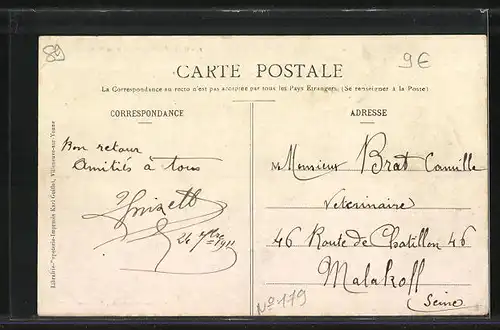 89
9€
CARTE POSTALE
La Correspondance au recto n'est pas acceptée par tous les Pays Étrangers. (Se renseigner à la Poste)
CORRESPONDANCE
ADRESSE
Bon retour
Amitiés à tous
26
Monsieur Brat Camille
Veterinaire
46 Route de Chatillon 46
Malakoff
(Seine)
Nº 179
Librairie-Papeterie-Imprimerie Karl Guillot, Villeneuve-sur-Yonne